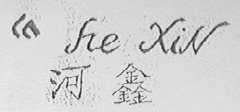 he XiN
河 鑫